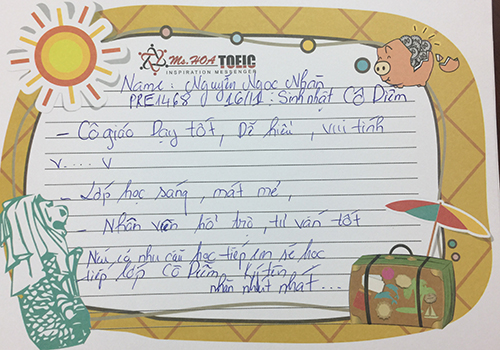 Ms. HOA TOEIC
INSPIRATION MESSENGER
Name: Nguyễn Ngọc Nhàn
PRE1468 16/11: Sinh nhật Cô Diễm
- Cô giáo Dạy tốt, Dễ hiểu, vui tính
v.... v
- Lớp học sáng, mát mẻ,
- Nhân viên hỗ trợ, tư vấn tốt
Nếu có nhu cầu học tiếp em sẽ học
tiếp lớp Cô Diễm. Ký tên
nhàn nhất...